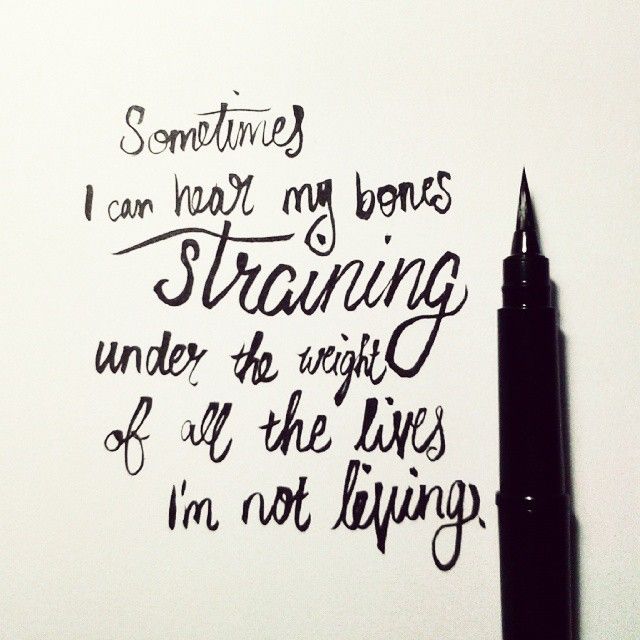 Sometimes
I can hear my bones
straining
under the weight
of all the lives
I'm not living.